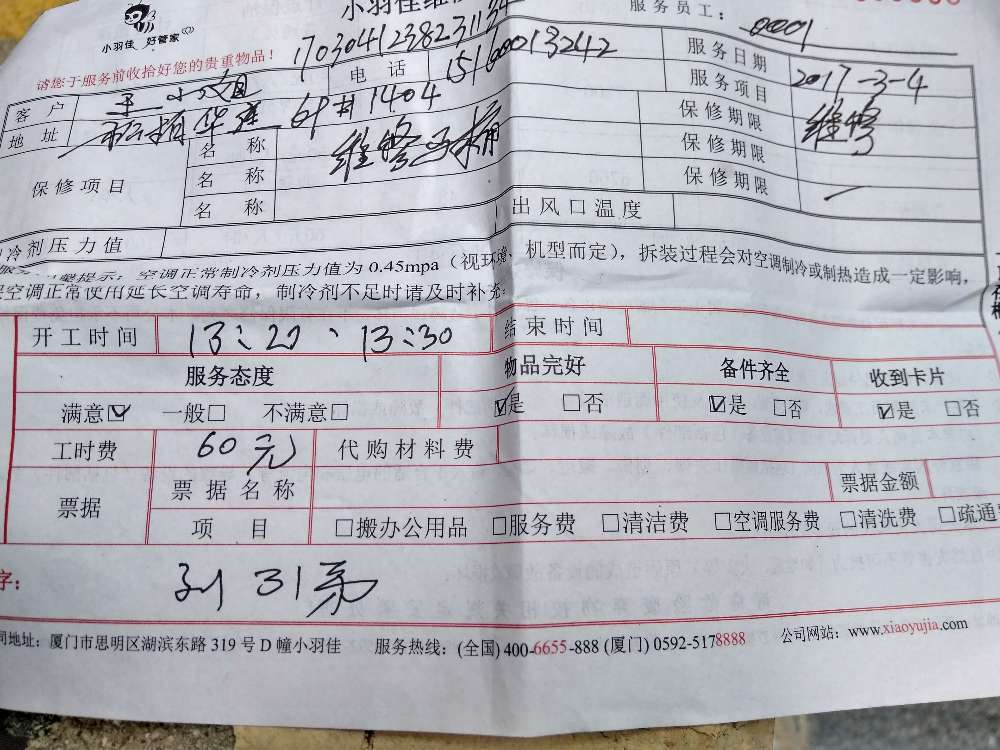 小羽佳 好管家
小羽佳维修
服务员工： 0001
请您于服务前收拾好您的贵重物品！
1703041238231134
客户 王小姐 电话 15100013242 服务日期 2017-3-4
地址 华庭 6#1404 服务项目 维修
保修项目 名称 维修马桶 保修期限
名称 保修期限
名称 保修期限
冷剂压力值 出风口温度
提示：空调正常制冷剂压力值为 0.45mpa（视环境、机型而定），拆装过程会对空调制冷或制热造成一定影响，
空调正常使用延长空调寿命，制冷剂不足时请及时补充
开工时间 13:20、13:30 结束时间
服务态度 物品完好 备件齐全 收到卡片
满意☑ 一般□ 不满意□ ☑是 □否 ☑是 □否 ☑是 □否
工时费 60元 代购材料费
票据 票据名称 票据金额
项目 □搬办公用品 □服务费 □清洁费 □空调服务费 □清洗费 □疏通
字：
司地址：厦门市思明区湖滨东路 319 号 D 幢小羽佳 服务热线：(全国) 400-6655-888 (厦门) 0592-5178888 公司网站：www.xiaoyujia.com